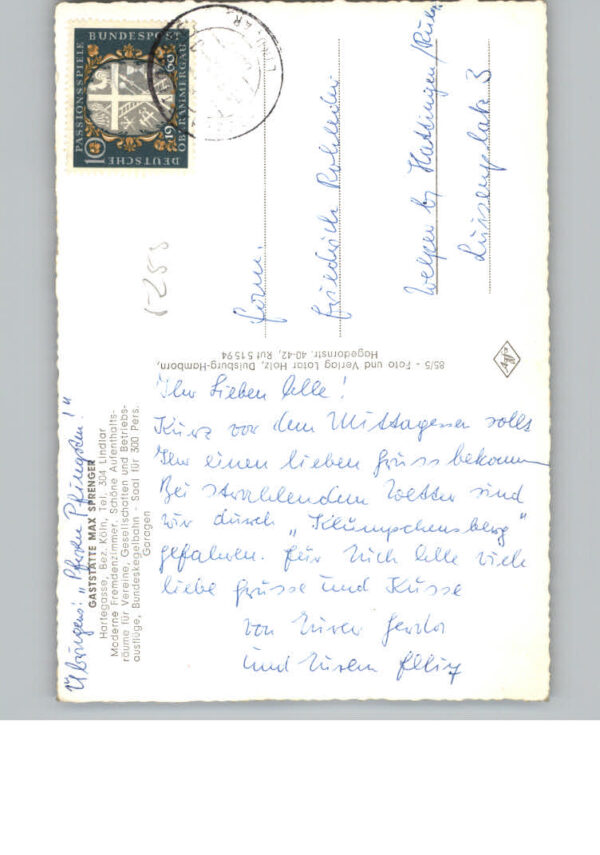 Ihr Lieben Alle!
Kurz vor dem Mittagessen sollt
Ihr einen lieben Gruss bekommen
Bei strahlendem Wetter sind
wir durch „Klümpchensberg"
gefahren. Für Euch Alle viele
liebe Grüsse und Küsse
von Eurer Gerda
und Eurem
Übrigens: „Pferden Pfingsten!"
GASTSTÄTTE MAX SPRENGER
Hartegasse, Bez. Köln, Tel. 304 Lindlar
Moderne Fremdenzimmer, Schöne Aufenthalts-
räume für Vereine, Gesellschaften und Betriebs-
ausflüge, Bundeskegelbahn - Saal für 300 Pers.
Garagen
85/5 - Foto und Verlag Lotar Holz, Duisburg-Hamborn,
Hagedornstr. 40-42, Ruf 5 15 94
Fam.
Friedrich
Welper by Hattingen/Ruhr
Luisenplatz 3
DEUTSCHE BUNDESPOST
PASSIONSSPIELE
OBERAMMERGAU
1960
10
LINDLAR
5288